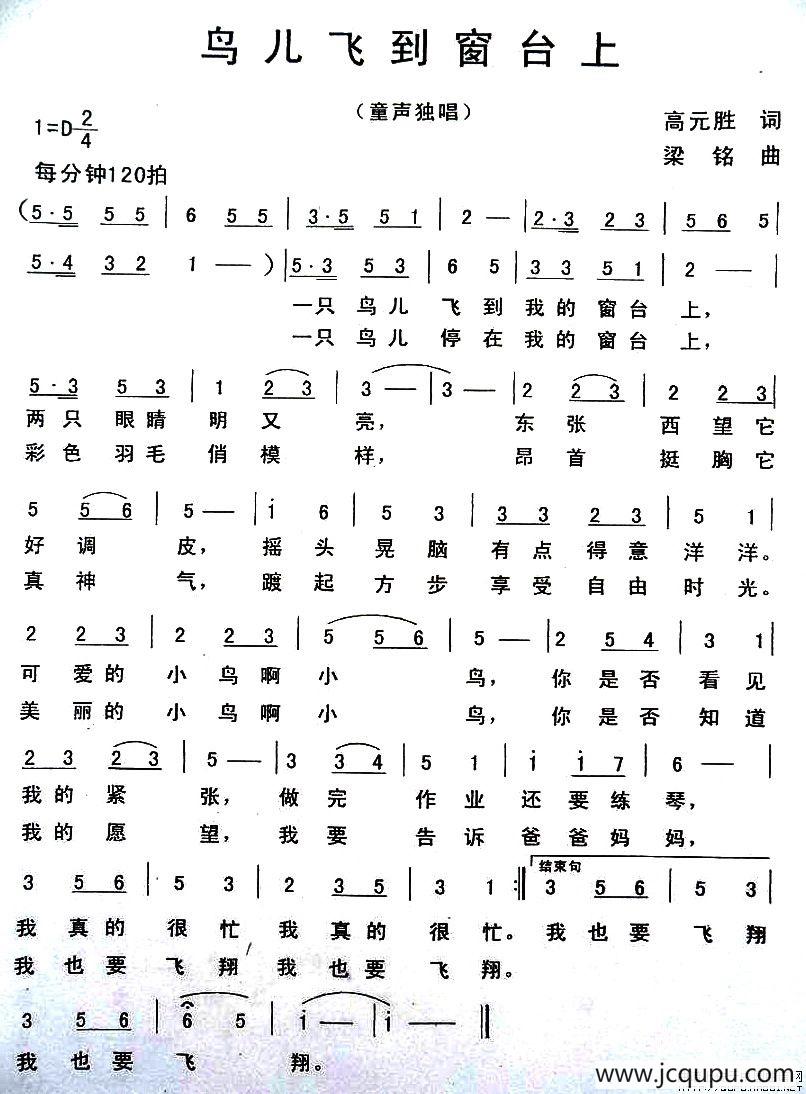 鸟儿飞到窗台上
（童声独唱）
1=D 2/4
高元胜 词
每分钟120拍
梁铭 曲
(5·5 5 5 | 6 5 5 | 3·5 5 1 | 2 — | 2·3 2 3 | 5 6 5 |
5·4 3 2 1 — ) | 5·3 5 5 | 6 5 | 3 3 5 1 | 2 — |
一只鸟儿 飞到我的窗台上，
一只鸟儿 停在我的窗台上，
5·3 5 3 | 1 2 3 | 3 — | 3 — | 2 2 3 | 2 2 3 |
两只眼睛明又亮， 东张西望它
彩色羽毛俏模样， 昂首挺胸它
5 5 6 | 5 — | i 6 | 5 3 | 3 3 2 3 | 5 1 |
好调皮，摇头晃脑有点得意洋洋。
真神气，踱起方步享受自由时光。
2 2 3 | 2 2 3 | 5 5 6 | 5 — | 2 5 4 | 3 1 |
可爱的小鸟啊小鸟，你是否看见
美丽的小鸟啊小鸟，你是否知道
2 3 2 3 | 5 — | 3 3 4 | 5 1 | i i 7 | 6 — |
我的紧张，做完作业还要练琴，
我的愿望，我要告诉爸爸妈妈，
结束句
3 5 6 | 5 3 | 2 3 5 | 3 1 :‖ 3 5 6 | 5 3 |
我真的很忙我真的很忙。我也要飞翔
我也要飞翔我也要飞翔。
3 5 6 | 6 5 | i — | i — ‖
我也要飞翔。
www.jcqupu.com